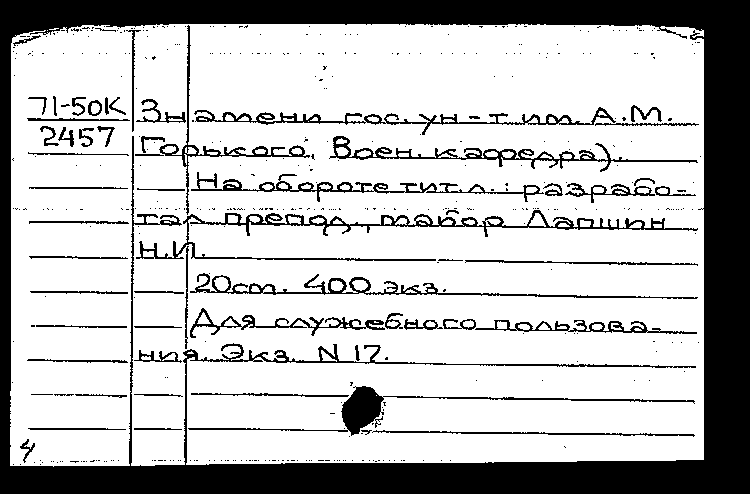 71-50К Знамени гос. ун-т им. А.М.
2457 Горького. Воен. кафедра).
На обороте тит.л.: разрабо-
тал препод., майор Лапшин
Н.И.
20см. 400 экз.
Для служебного пользова-
ния. Экз. N 17.
4